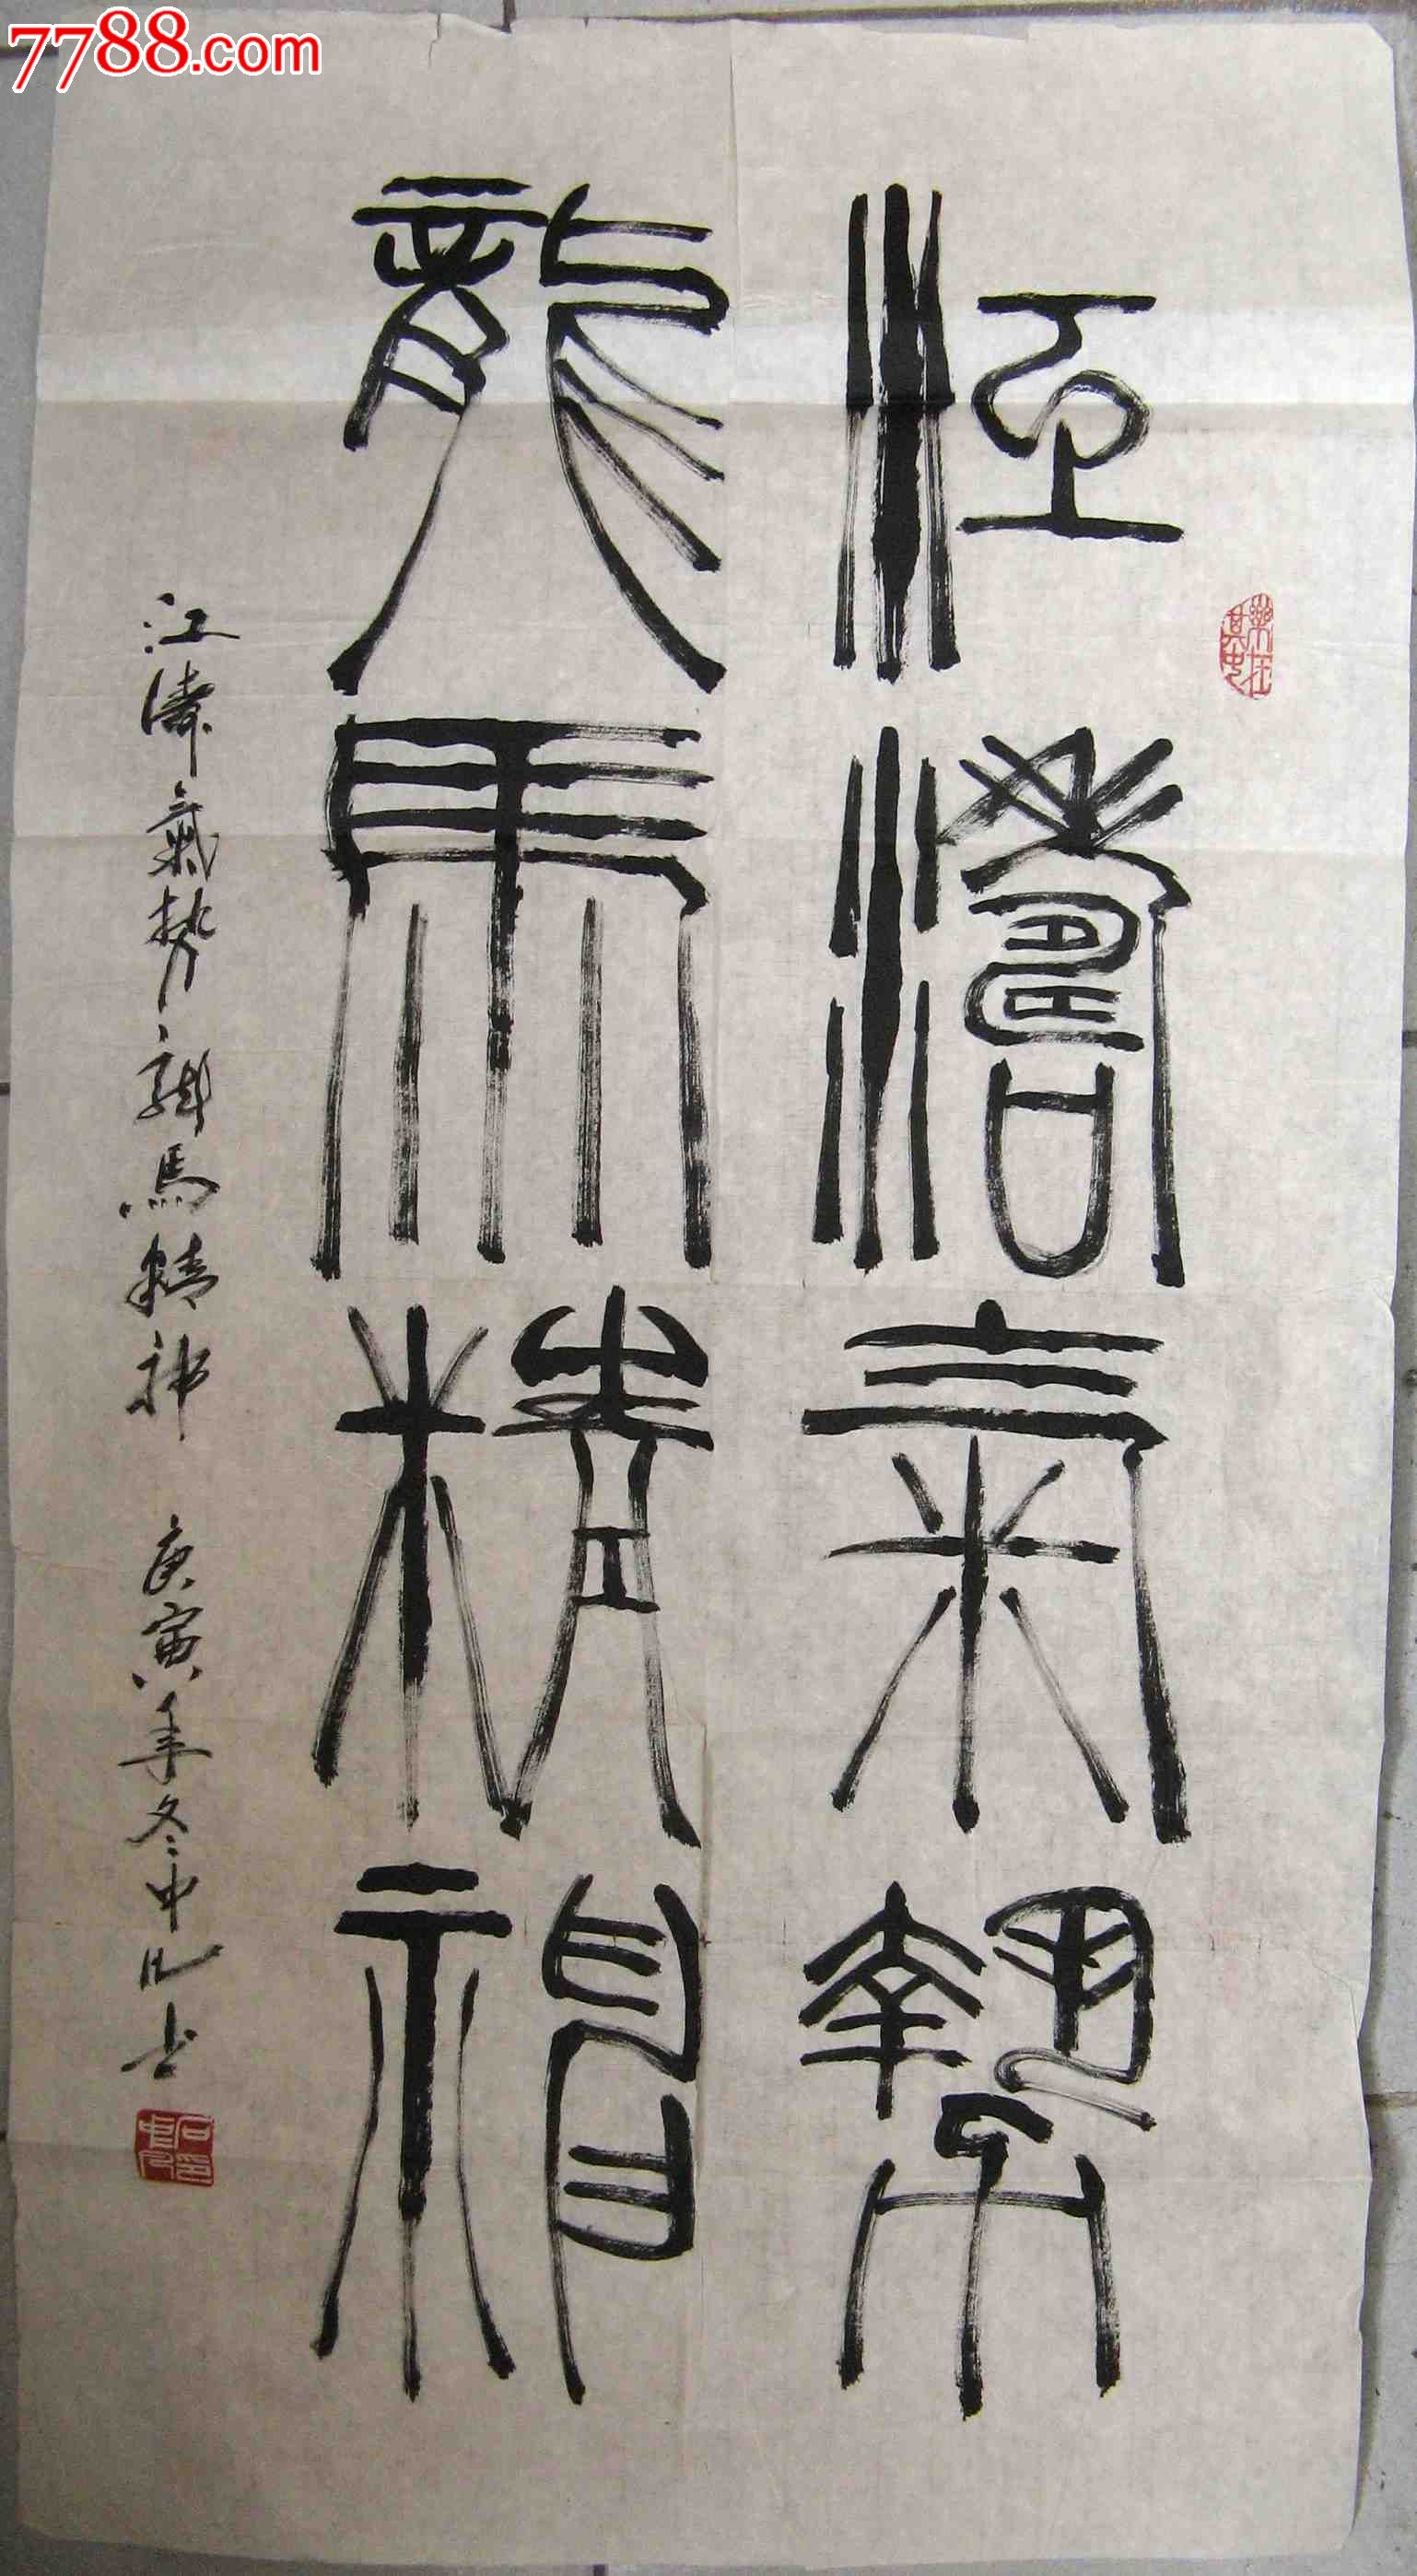 7788.com
江濤氣勢
龍馬精神
樂在其中
江濤氣势龍馬精神 庚寅年冬中